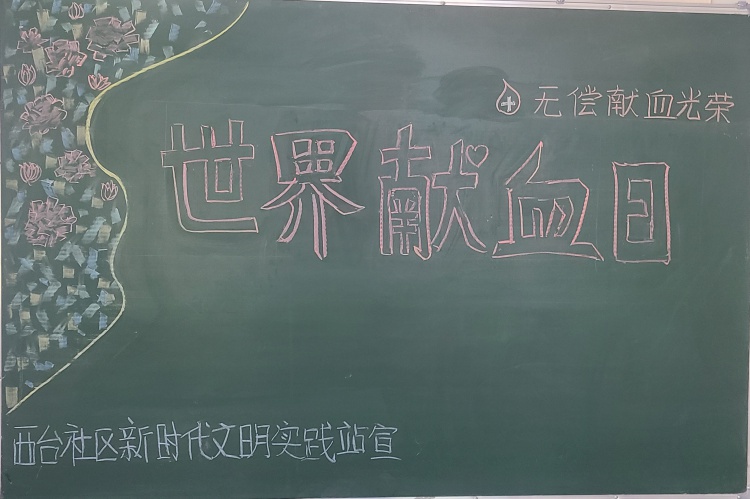 无偿献血光荣
世界献血日
西台社区新时代文明实践站宣